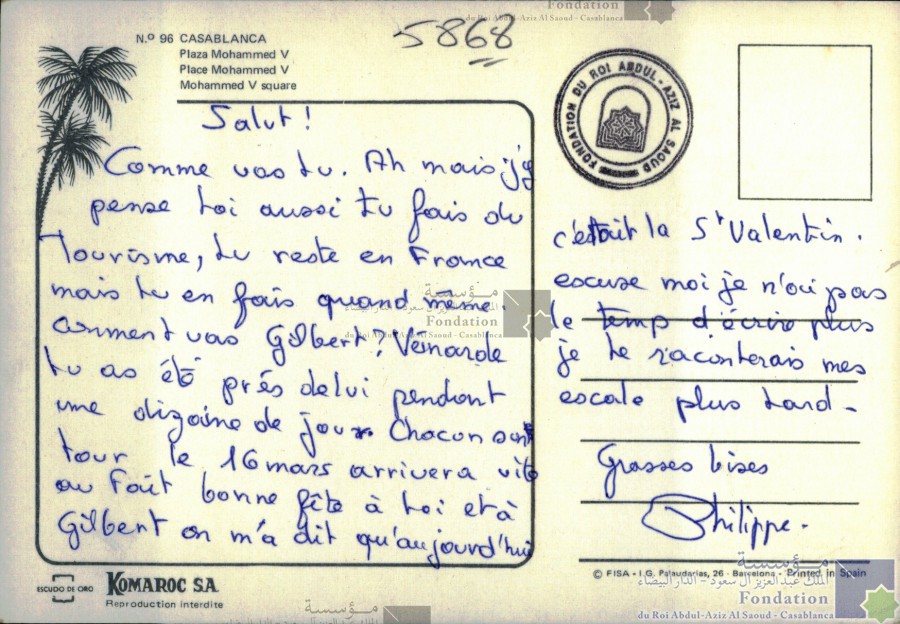 Fondation
du Roi Abdul-Aziz Al Saoud - Casablanca
N.º 96 CASABLANCA
Plaza Mohammed V
Place Mohammed V
Mohammed V square
5868
FONDATION DU ROI ABDUL-AZIZ AL SAOUD
Salut !
Comme vas tu. Ah mais j'y
pense toi aussi tu fais du
Tourisme, tu reste en France
mais tu en fais quand même
comment vas Gilbert, Veinarde
tu as été près de lui pendant
une dizaine de jours Chacun son
tour le 16 mars arrivera vite
au Fait bonne fête à toi et à
Gilbert on m'a dit qu'aujourd'hui
c'était la St Valentin.
escuse moi je n'ai pas
le temp d'écrire plus
je te raconterais mes
escale plus tard -
Grosses bises
Philippe.
مؤسسة
الملك عبد العزيز آل سعود - الدار البيضاء
Fondation
du Roi Abdul-Aziz Al Saoud - Casablanca
ESCUDO DE ORO
KOMAROC S.A.
Reproduction interdite
© FISA - I.G. Palaudarias, 26 - Barcelona - Printed in Spain
مؤسسة
الملك عبد العزيز آل سعود - الدار البيضاء
Fondation
du Roi Abdul-Aziz Al Saoud - Casablanca
مؤسسة